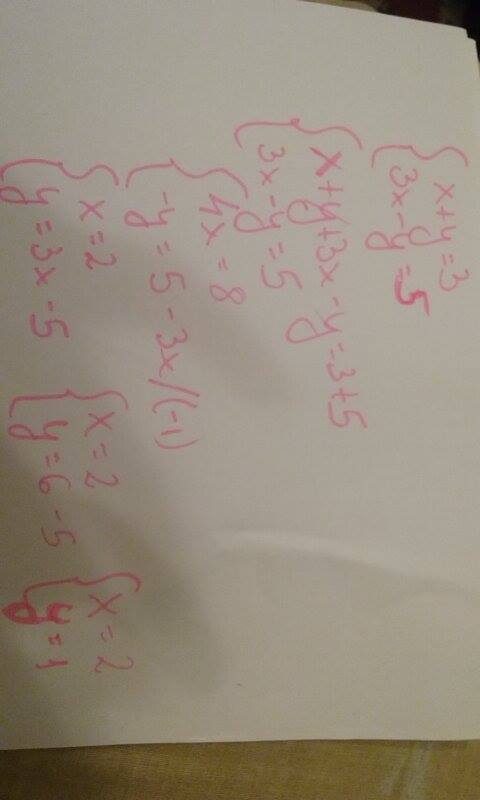 x+y=3
3x-y=5
x+y+3x-y=3+5
3x-y=5
4x=8
-y=5-3x/(-1)
x=2
y=3x-5
x=2
y=6-5
x=2
y=1